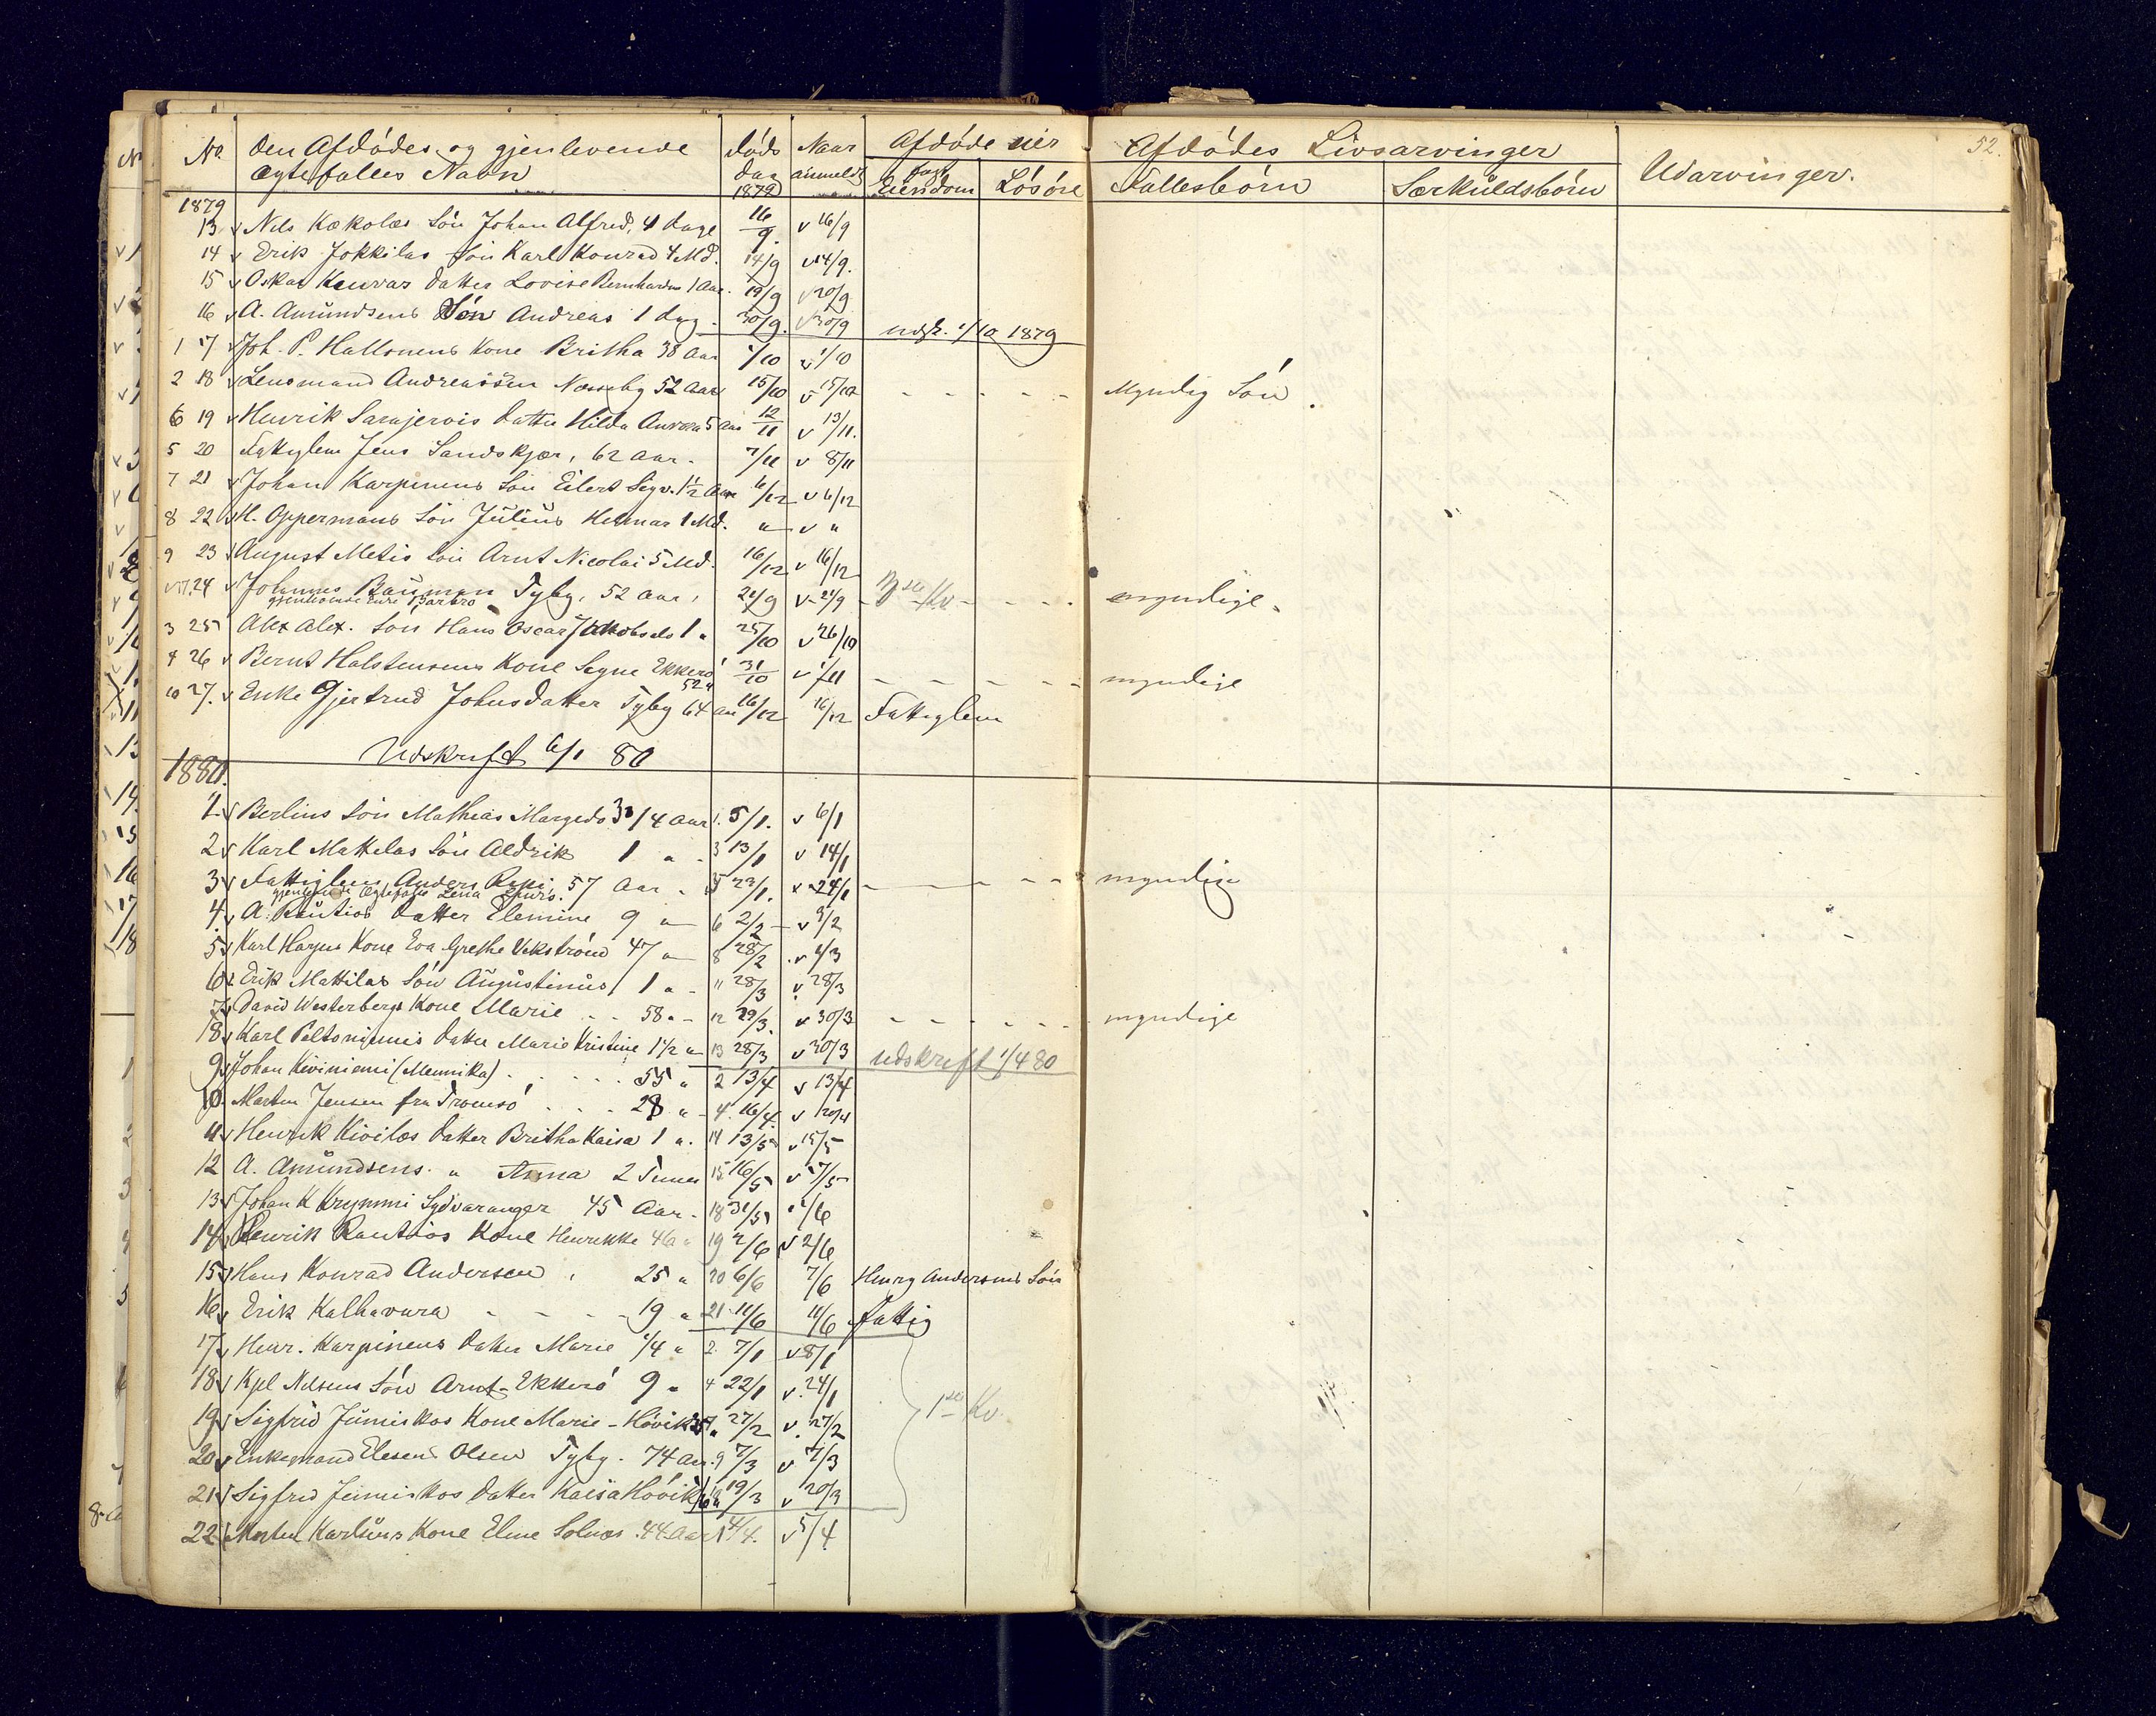 No. den Afdødes og gjenlevende døds Naar Afdøde eier Afdødes Livsarvinger Udarvinger. 52.
Ægtefælles Navn dag anmeldt fast Eiendom Løsøre Fællesbørn Særkuldsbørn
1879 1879
13 v Nils Kækolas Søn Johan Alfred, 4 dage 16/9. v 16/9
14 v Erik Jokkilas Søn Karl Konrad 4 Md. 14/9 v 14/9.
15 v Oskar Kenvas datter Lovise Bernhardine 1 Aar. 19/9 v 20/9
16 v A. Amundsens Søn Andreas 1 dag. 30/9. v 30/9 udsk. 1/10 1879
1 17 v Joh. P. Hallonens Kone Britha 38 Aar 1/10 v 1/10
2 18 v Lensmand Andreassen Næsseby 52 Aar 15/10 v 15/10 - - - - - Myndig Søn.
6 19 v Henrik Sarajervis datter Hilda Aurora 5 Aar 12/11 v 13/11.
5 20 Fattiglem Jens Sandskjær, 62 Aar. 7/11 v 8/11
7 21 v Johan Karpinens Søn Eilert Sigv. 1 1/2 Aar 6/12 v 6/12
8 22 v H. Oppermans Søn Julius Helmar 1 Md. " v "
9 23 v August Metis Søn Arnt Nicolai 5 Md. 16/12 v 16/12
24 v Johannes Bauman Tyby, 52 Aar, 21/9 v 21/9 - 3die Kv - - - - myndige.
gjenlevende Enke Barbro
3 25 Alex Alex. Søn Hans Oscar Jakobselv 1 " 25/10 v 26/10
4 26 v Bernt Halstensens Kone Segne Ekkerø 31/10 v 1/11 - - - - - myndige
52 "
10 27. v Enke Gjertrud Johnsdatter Tyby 64 Aar 16/12 16/12 Fattiglem
Udskrift 6/1 80
1880.
1. v Berlins Søn Mathias Margido 3 3/4 Aar 1. 5/1. v 6/1
2 v Karl Mattilas Søn Aldrik 1 " - 3 13/1 v 14/1
3 v Fattiglem Anders Rapi, 57 Aar - 5 23/1. v 24/1 - - - - - myndige
gjenlevende Ægtefælle Lena
4. v A. Rautios datter Elemine 9 " 6 2/2 - v 3/2
5 v Karl Hagus Kone Eva Grethe Vekstrøm 47 " 8 28/2 . v 1/3
6 v Erik Mattilas Søn Augustinus 1 " - 11 28/3 v 28/3
7 v David Westerbergs Kone Marie - - 58 " - 12 29/3. v 30/3 - - - - - - myndige
8 v Karl Peltoniemis datter Marie Kristine 1 1/2 " 13 28/3 v 30/3 udskrift 1/4 80
9 v Johan Kiviniemi (Mennika) . . . . . . 55 " 2 13/4 v 13/4
10. Martin Jensen fra Tromsø . . . . 28 " - 4. 16/4 v 20/4
11 v Henrik Kivilas datter Britha Kaisa 1 ". 14 13/5 v 15/5
12 A. Amundsens. " Anna 2 Timer 15 16/5 v 17/5
13 v Johan K Krymmi Sydvaranger 45 Aar. 18 31/5 1/6
14 v Henrik Rautios Kone Henrikke 46 " 19 2/6 v 2/6
15 v Hans Konrad Andersen , 25 " 20 6/6 7/6 Henry Andersens Søn
16 v Erik Kalhavura - - - - 19 " 21 11/6 11/6 fattig
17 v Henr. Karpinens datter Marie 1/4 " 2. 7/1 v 8/1
18 v Kjel Nilsens Søn Arnt - Ekkerø 9 " 4 22/1 v. 24/1
19 v Sigfrid Juniskos Kone Marie - Høvik 27/2 v. 27/2 1ste Kv.
20 v Enkemand Elesens Olsen Tyby. 74 Aar. 9 7/3 v 7/3
21 v Sigfrid Juniskos datter Kaisa Høvik 19/3 v 20/3
22 v Morten Karlsens Kone Eline Solnæs. 44 Aar 1 4/4. v 5/4